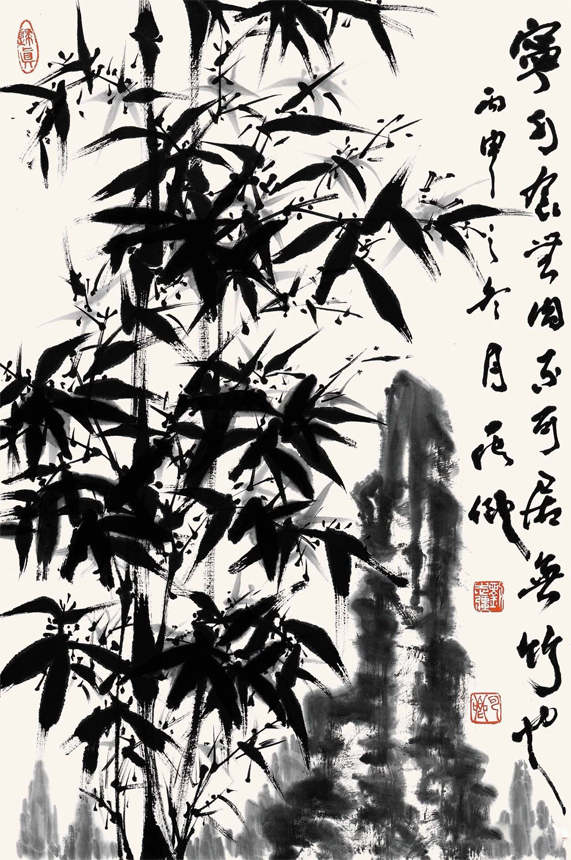 寧可食無肉不可居無竹也
丙申之冬月